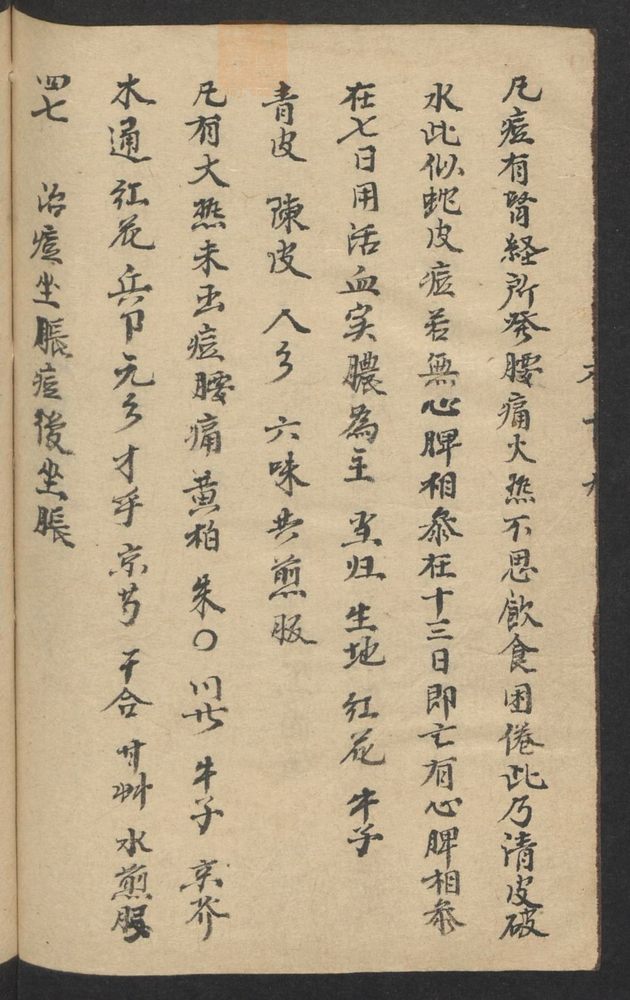 凢痘有腎経所發腰痛大热不思飲食困倦此乃清皮破
水此似蛇皮痘若無心脾相叅在十三日即亡有心脾相叅
在七日用活血实膿為主 归 生地 红花 牛子
青皮 陳皮 人 六味共煎服
凢有大热未出痘腰痛 黄柏 朱〇 川 牛子 京芥
木通 红花 元 京芍 甘艸 水煎服
四七 治痘坐脹痘後坐脹